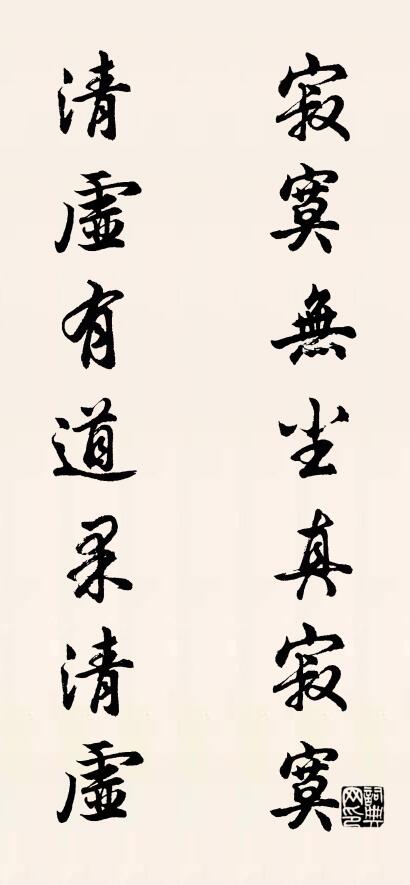 寂寞無尘真寂寞
清虛有道果清虛
詞典网印